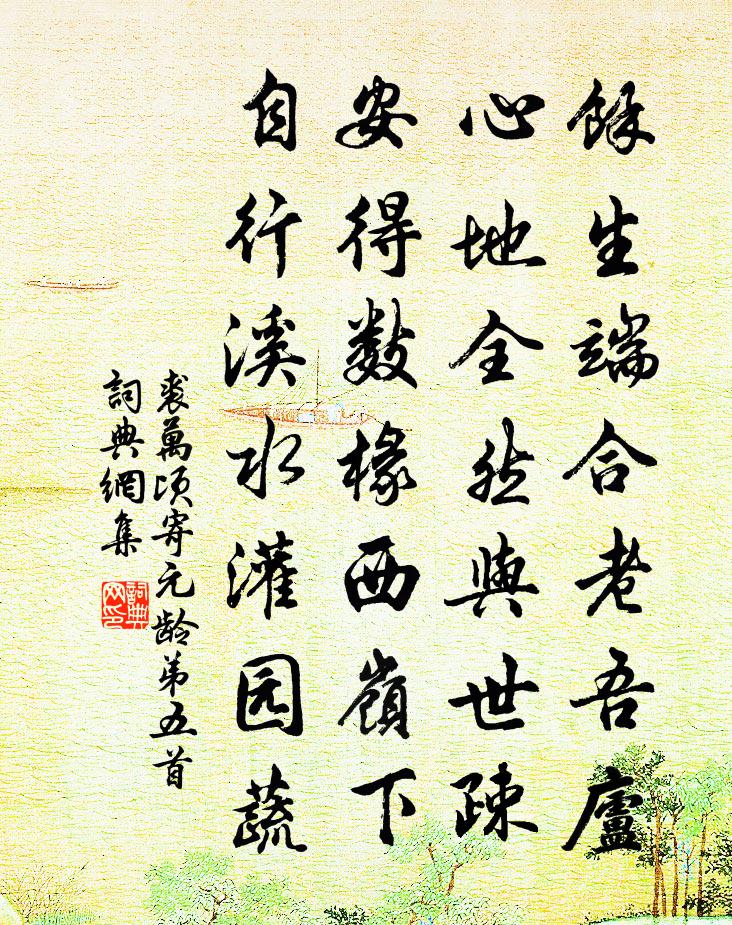 餘生端合老吾廬
心地全然與世疎
安得數椽西嶺下
自行溪水灌园蔬
裘萬頃寄元龄第五首
詞典網集
詞典网印